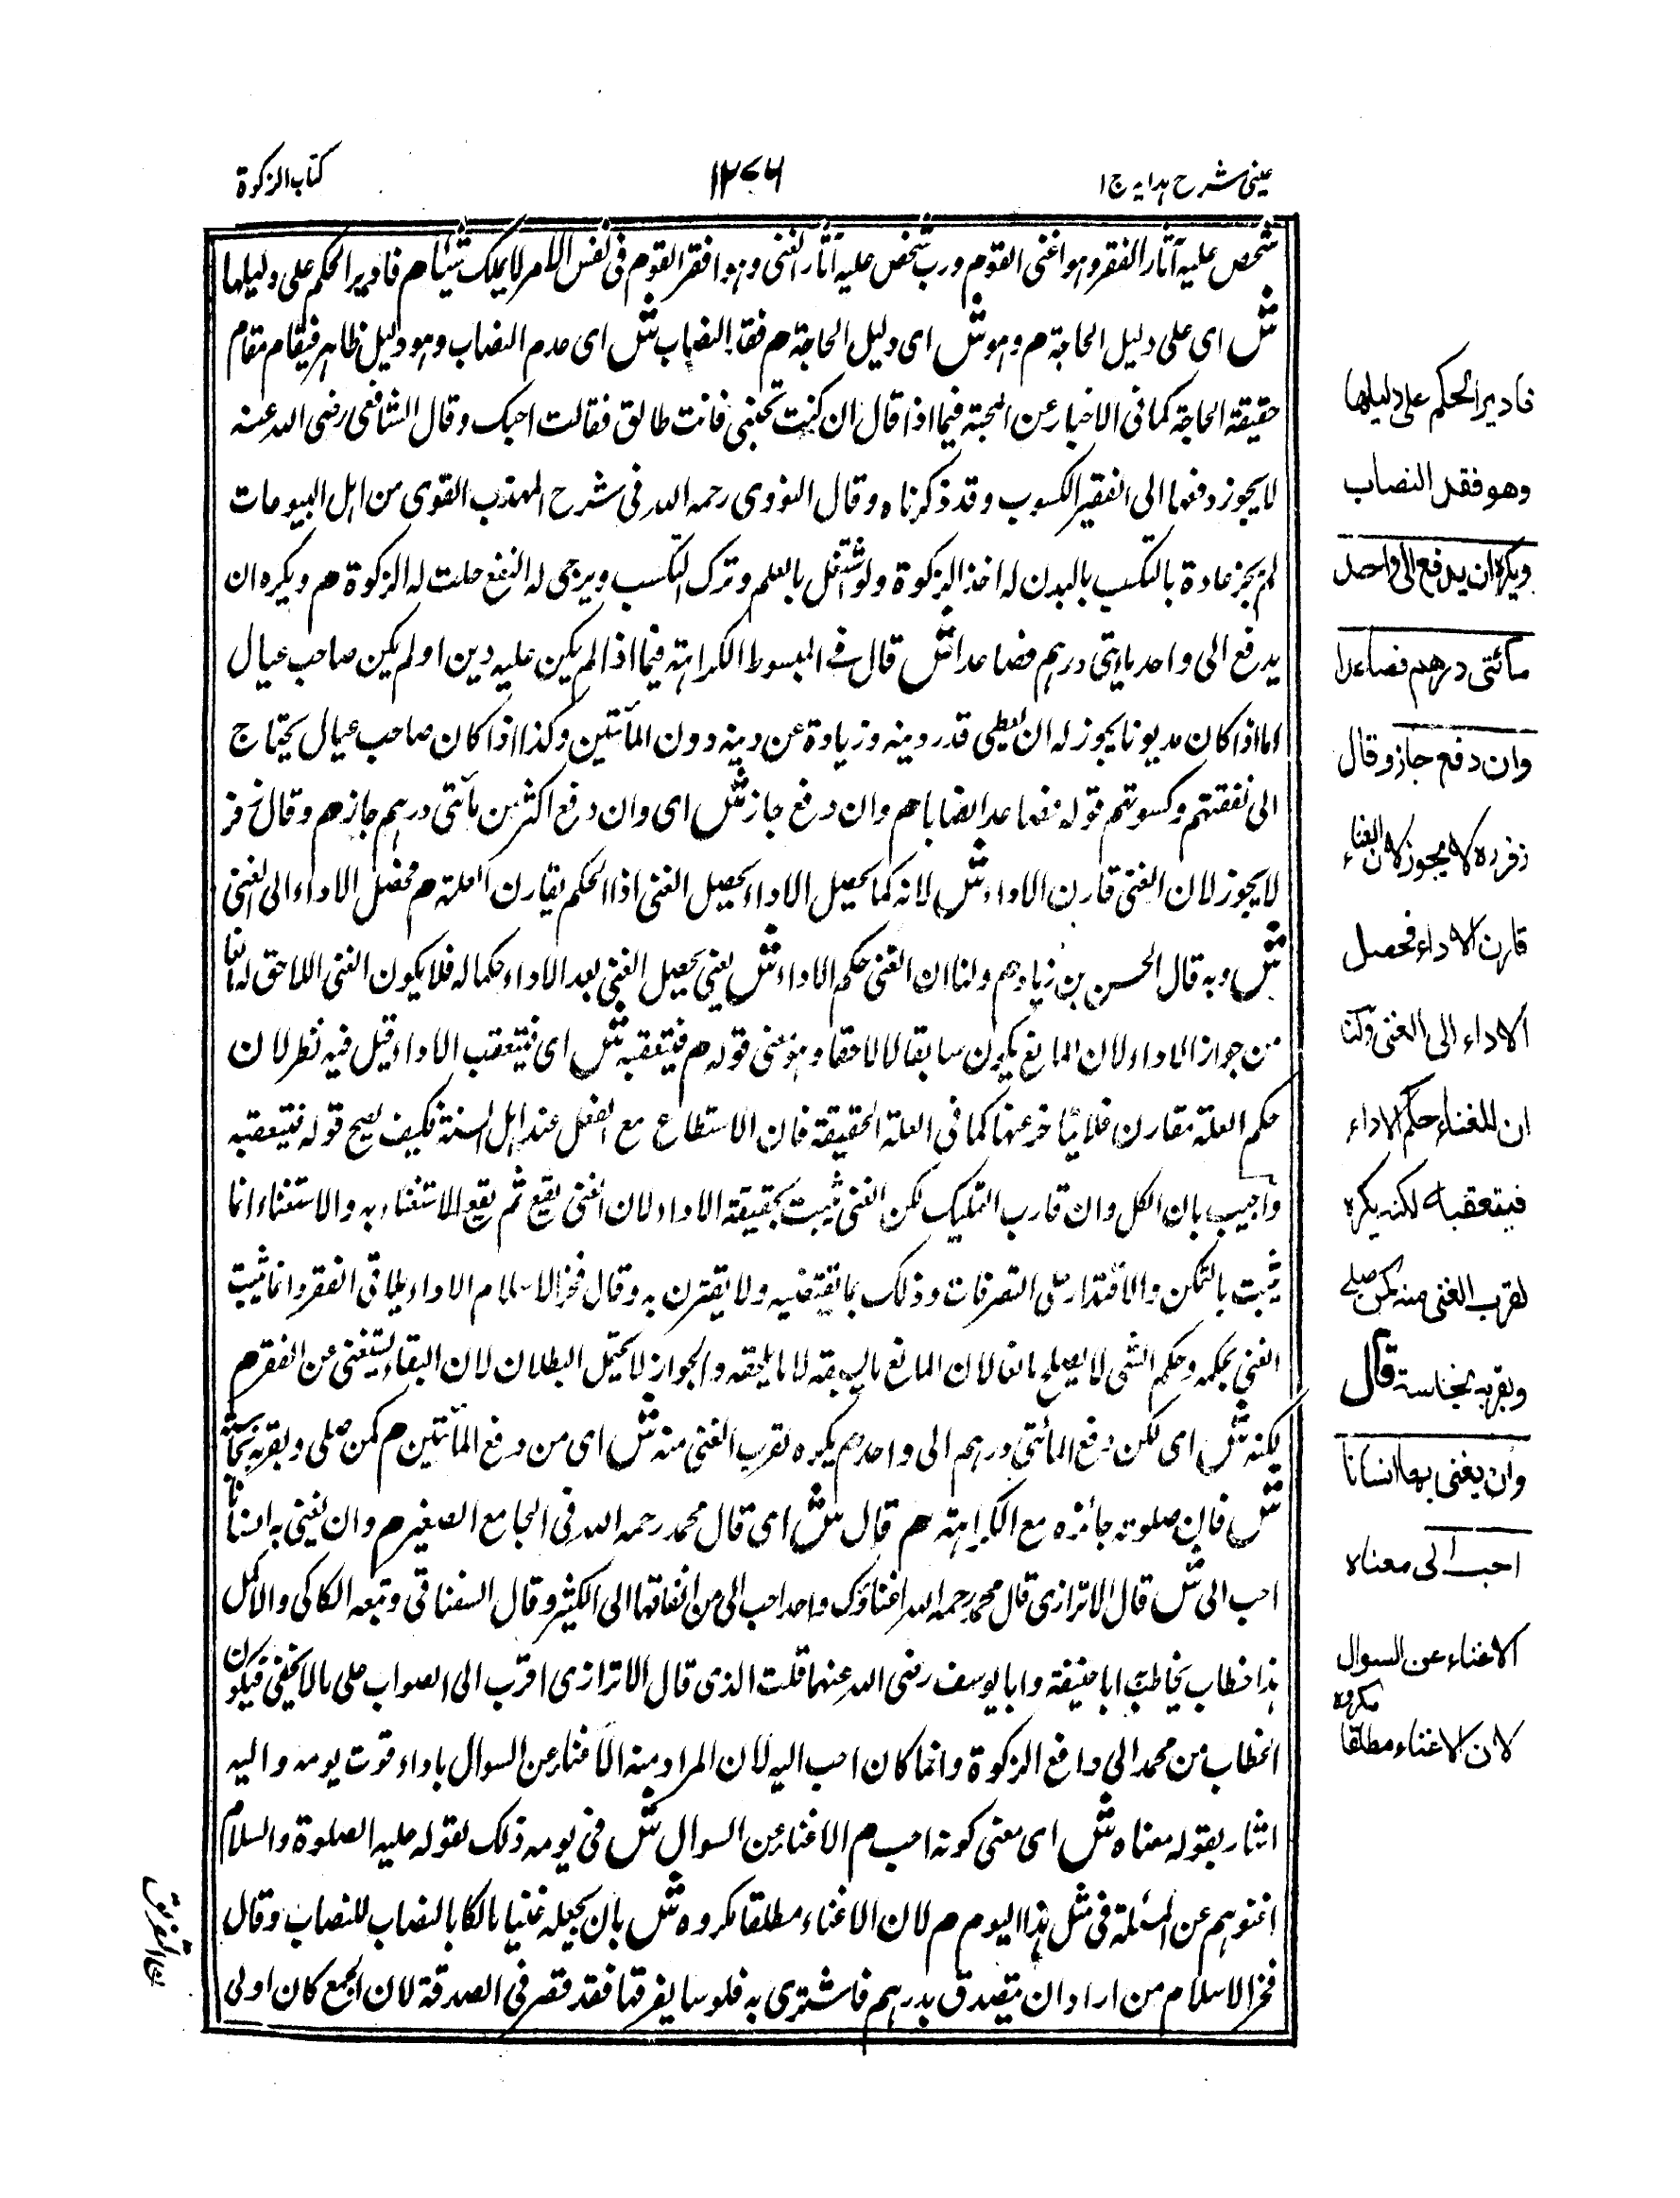 عینی شرح ہدایہ ج ا
۱۲۷۶
کتاب الزکوة
شخص علیه آثار الفقر وہو اغنی القوم ورب شخص علیه آثار الغنی وہو افقر القوم فی نفس الامر لا یملک شیئا ھم فادیر الحکم علی دلیلها
ش ای علی دلیل الحاجة م وہو ش ای دلیل الحاجة ھم فقد النصاب ش ای عدم النصاب وہو دلیل ظاہر فیقام مقام
حقیقة الحاجة کما فی الاخبار عن المحبة فیما اذا قال ان کنت تحبنی فانت طالق فقالت احبک وقال الشافعی رضی الله عنه
لا یجوز دفعها الی الفقیر الکسوب وقد ذکرناہ وقال النووی رحمه الله فی شرح المهذب القوی من اہل البیوتات
لم یجز عادة بالتکسب بالبدن له اخذ الزکوة ولو اشتغل بالعلم وترک التکسب ویرجی له النفع حلت له الزکوة ھم ویکره ان
یدفع الی واحد مأیتی درہم فصاعدا ش قال فی المبسوط الکراہته فیما اذا لم یکن علیه دین او لم یکن صاحب عیال
اما اذا کان مدیونا یجوز له ان یعطی قدر دینه وزیادة عن دینه دون المأتین وکذا اذا کان صاحب عیال یحتاج
الی نفقتهم وکسوتهم قوله فصاعدا نصابا ھم وان دفع جاز ش ای وان دفع اکثر من مأتی درہم جاز ھم وقال زفر
لا یجوز لان الغنی قارن الاداء ش لانه کما یحصل الاداء یحصل الغنی اذا الحکم یقارن العلة ھم فحصل الاداء الی الغنی
ش وبه قال الحسن بن زیاد ھم ولنا ان الغنی حکم الاداء ش یعنی یحصل الغنی بعد الاداء حکما له فلا یکون الغنی اللاحق له مانعا
من جواز الاداء لان المانع یکون سابقا لا لاحقا وہو معنی قوله م فیتعقبه ش ای فیتعقب الاداء قیل فیه نظر لان
حکم العلة مقارن فلا یتأخر عنها کما فی العلة الحقیقة فان الاستطاع مع الفعل عند اہل السنة فکیف یصح قوله فیتعقبه
واجیب بان الکل وان قارب التملیک لکن الغنی یثبت بحقیقة الاداء لان الغنی یقع ثم یقع الاستغناء به والاستغناء انما
یثبت بالتمکن والاقتدار علی التصرفات وذلک بما یقتضیه ولا یقترن به وقال فخر الاسلام الاداء یلاقی الفقر وانما یثبت
الغنی بحکمه وحکم الشی لا یصلح مانعا لان المانع ما یسبقه لا ما یلحقه والجواز لا یحتمل البطلان لان البقاء یستغنی عن الفقر ھم
لکنه ش ای لکن دفع المأتی درہم الی واحد ھم یکره لقرب الغنی منه ش ای من دفع المأتین م کمن صلی وبقربه نجاسة
ش فان صلوته جائزہ مع الکراہته ھم قال ش ای قال محمد رحمه الله فی الجامع الصغیر ھم وان یغنی به انسانا
احب الی ش قال الاترازی قال محمد رحمه الله اغناؤک واحدا احب الی من انفاقها الی الکثیر وقال السغناقی وتبعه الکاکی والاکمل
ہذا خطاب یخاطب ابا حنیفة وابا یوسف رضی الله عنهما قلت الذی قال الاترازی اقرب الی الصواب علی ما لا یخفی فیکون
الخطاب من محمد الی دافع الزکوة وانما کان احب الیه لان المراد منه الاغناء عن السوال باداء قوت یومه والیه
اشار بقوله معناہ ش ای معنی کونه احب م الاغناء عن السوال ش فی یومه ذلک لقوله علیه الصلوة والسلام
اغنوہم عن المسئلة فی مثل ہذا الیوم ھم لان الاغناء مطلقا مکروہ ش بان یجعله غنیا مالکا بالنصاب للنصاب وقال
فخر الاسلام من اراد ان یتصدق بدرہم فاشتری به فلوسا یفرقها فقد قصر فی الصدقة لان الجمع کان اولی
فادیر الحکم علی دلیلها
وهو فقد النصاب
ویکره ان یدفع الی واحد
مائتی درهم فصاعدا
وان دفع جاز وقال
زفر ره لا یجوز لان الغناء
قارن الاداء فحصل
الاداء الی الغنی ولنا
ان الغناء حکم الاداء
فیتعقبه لکنه یکره
لقرب الغنی منه کمن صلے
وبقربه نجاسة قال
وان یغنی بها انسانا
احب الی معناه
الاغناء عن السوال
لان الاغناء مطلقا مکروه